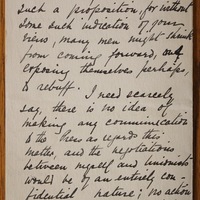 such a proposition, for without
some such indication of your
views, many men might shrink
from coming forward, and
exposing themselves perhaps,
to rebuff. I need scarcely
say, there is no idea of
making any communication
to the Press as regards this
matter, and the negotiations
between myself and Unionists
would be of an entirely con-
fidential nature; no action